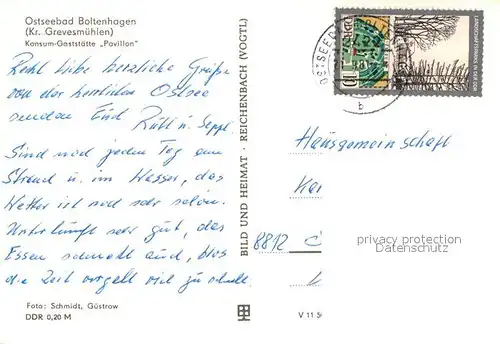 Ostseebad Boltenhagen
(Kr. Grevesmühlen)
Konsum-Gaststätte „Pavillon"
Recht liebe herzliche Grüße
von der herrlichen Ostsee
senden Euch Rütt u. Seppl.
Sind nach jeden Tag am
Strand u. im Wasser, das
Wetter ist noch sehr schön.
Unterkunft sehr gut, das
Essen schmeckt auch, blos
die Zeit vergeht viel zu schnell.
Foto: Schmidt, Güstrow
DDR 0,20 M
BILD UND HEIMAT · REICHENBACH (VOGTL)
OSTSEEBAD
b
DDR
10
Hausgemeinschaft
8812
V 11 50
privacy protection
Datenschutz